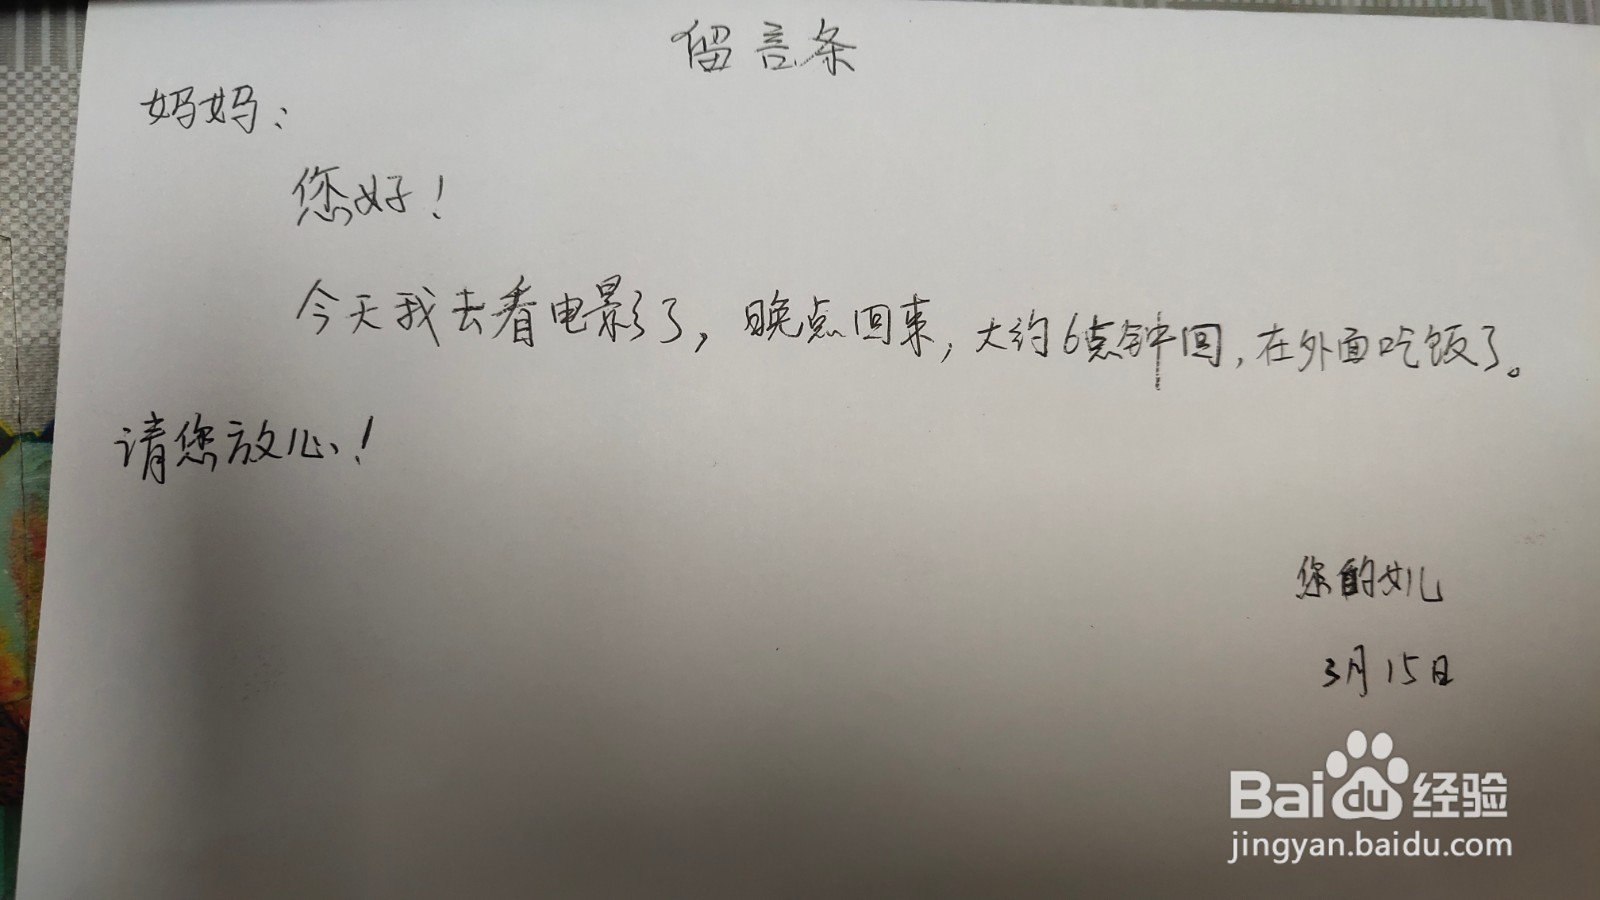 留言条
妈妈：
您好！
今天我去看电影了，晚点回来，大约6点钟回，在外面吃饭了。
请您放心！
您的女儿
3月15日
Baidu经验
jingyan.baidu.com